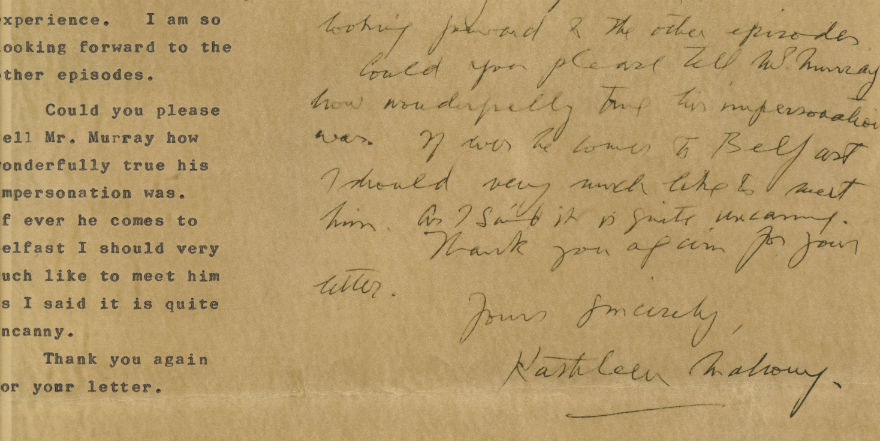 xperience. I am so
ooking forward to the
ther episodes.
Could you please
ell Mr. Murray how
onderfully true his
mpersonation was.
f ever he comes to
elfast I should very
uch like to meet him
s I said it is quite
ncanny.
Thank you again
or your letter.
looking forward to the other episodes
Could you please tell Mr. Murray
how wonderfully true his impersonation
was. If ever he comes to Belfast
I should very much like to meet
him. As I said it is quite uncanny.
Thank you again for your
letter.
Yours Sincerely,
Kathleen Mahony.